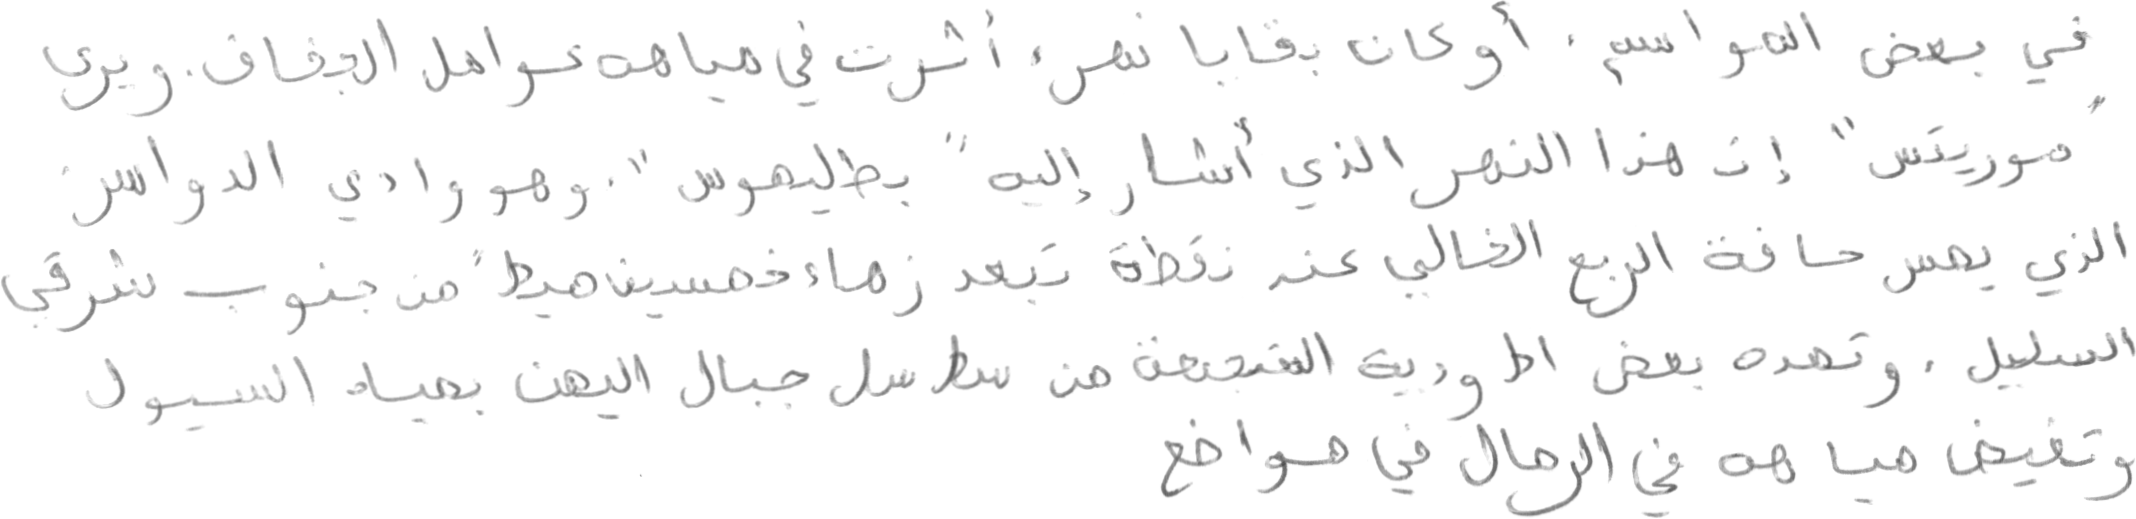 في بعض المواسم، أو كان بقايا نهر، أثرت في مياهه عوامل الجفاف. ويرى
"موريتس" إن هذا النهر الذي أشار إليه "بطليموس". وهو وادي الدواسر
الذي يمس حافة الربع الخالي عند نقطة تبعد زهاء خمسين ميلاً من جنوب شرقي
السليل، وتمده بعض الأودية المتجمعة من سلاسل جبال اليمن بمياه السيول
وتفيض مياهه في الرمال في مواضع